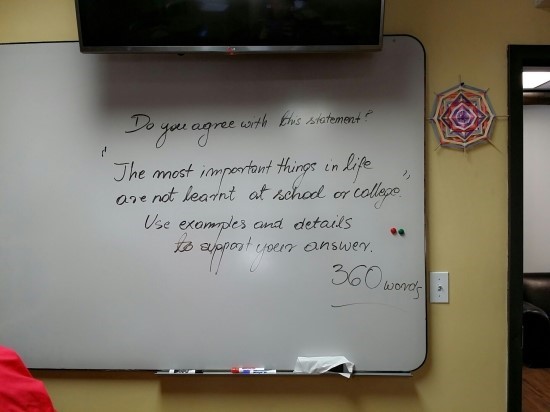 Do you agree with this statement?
"The most important things in life
are not learnt at school or college."
Use examples and details
to support your answer.
360 words